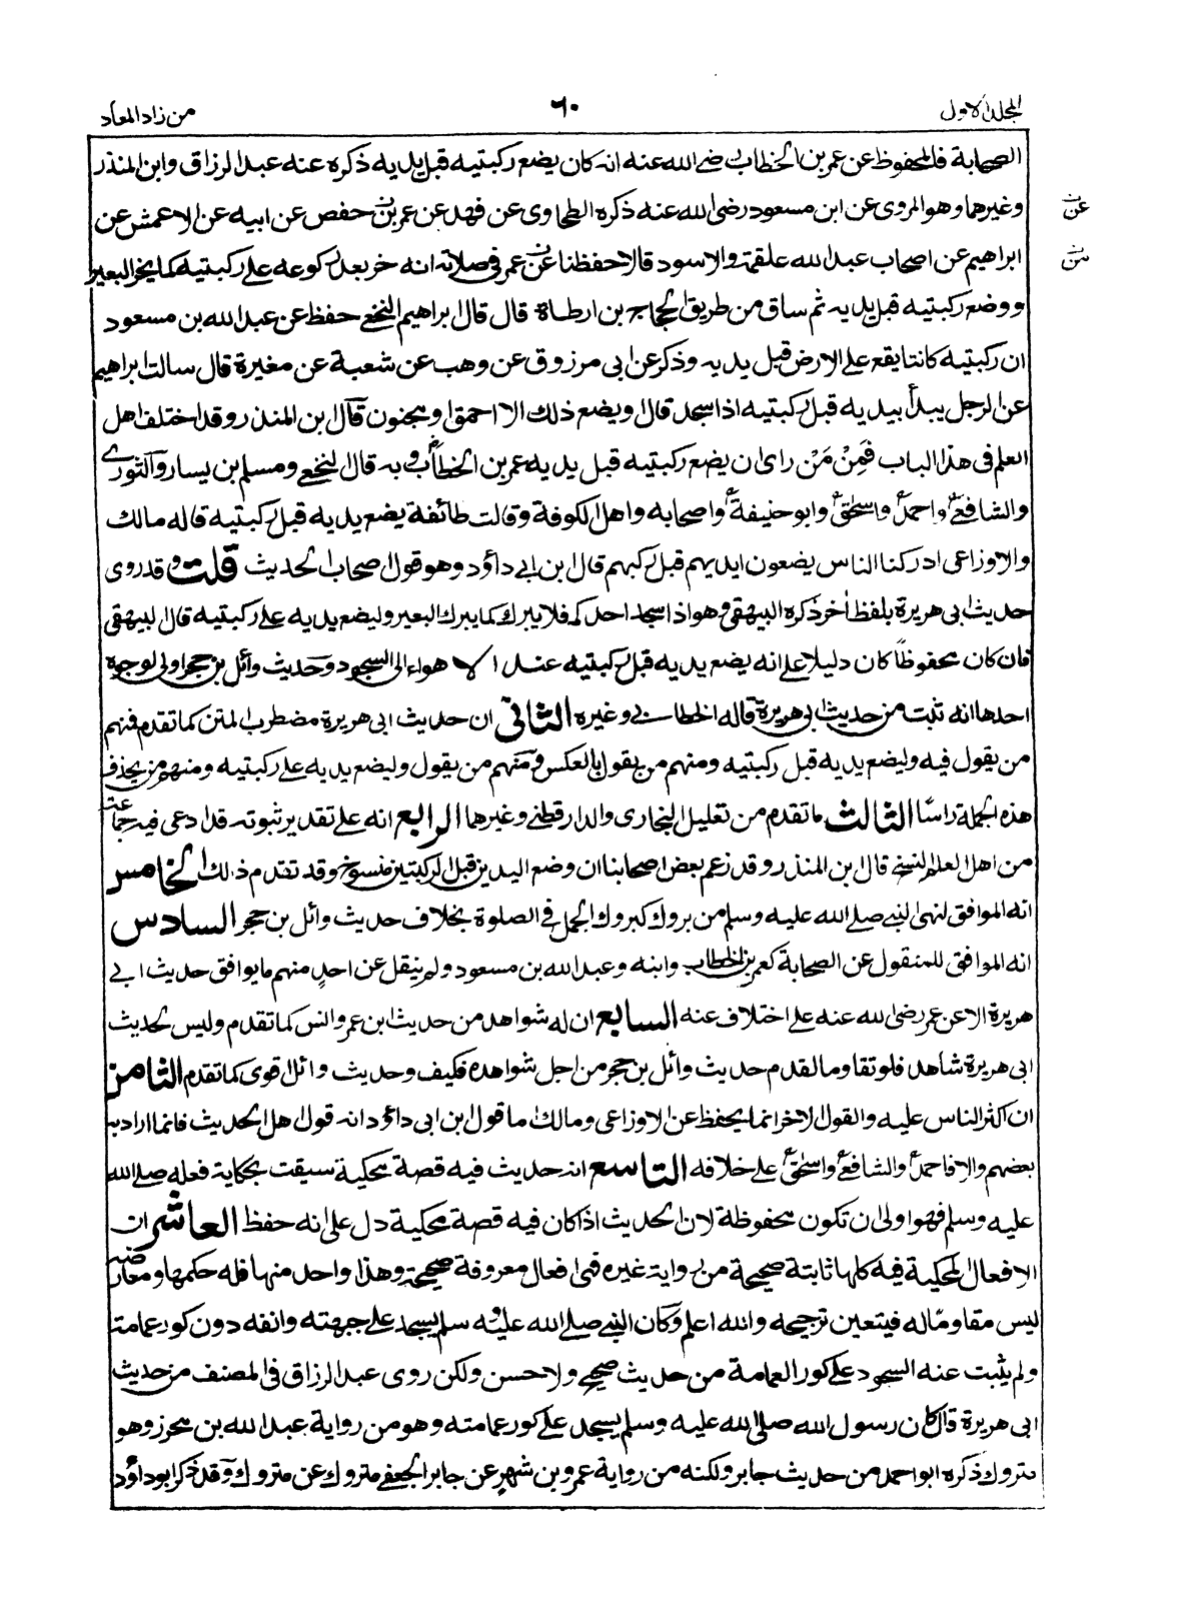 المجلد الاول
٦٠
من زاد المعاد
الصحابة فالمحفوظ عن عمر بن الخطاب رضي الله عنه انه كان يضع ركبتيه قبل يديه ذكره عنه عبد الرزاق وابن المنذر
وغيرهما وهو المروى عن ابن مسعود رضى الله عنه ذكره الطحاوى عن فهد عن عمر بن حفص عن ابيه عن الاعمش عن
ابراهيم عن اصحاب عبد الله علقمة والاسود قالا حفظنا عن عمر فى صلاته انه خر بعد ركوعه على ركبتيه كما يخر البعير
ووضع ركبتيه قبل يديه ثم ساق من طريق الحجاج بن ارطاة قال قال ابراهيم النخعي حفظ عن عبد الله بن مسعود
ان ركبتيه كانتا يقع على الارض قبل يديه وذكر عن ابى مرزوق عن وهب عن شعبة عن مغيرة قال سالت ابراهيم
عن الرجل يبدأ بيديه قبل ركبتيه اذا سجد قال او يضع ذلك الا احمق او مجنون قال ابن المنذر وقد اختلف اهل
العلم فى هذا الباب فمِنْ مَنْ راى ان يضع ركبتيه قبل يديه عمر بن الخطاب وبه قال النخعي ومسلم بن يسار والثوري
والشافعي واحمد واسحق وابو حنيفة واصحابه واهل الكوفة وقالت طائفة يضع يديه قبل ركبتيه قاله مالك
والاوزاعى ادركنا الناس يضعون ايديهم قبل ركبهم قال ابن ابي داؤد وهو قول اصحاب الحديث قلت وقد روى
حديث ابى هريرة بلفظ اٰخر ذكره البيهقى وهو اذا سجد احدكم فلا يبرك كما يبرك البعير وليضع يديه على ركبتيه قال البيهقى
فان كان محفوظاً كان دليلا على انه يضع يديه قبل ركبتيه عند الاهواء الى السجود وحديث وائل بن حجر اولى لوجوه
احدها انه ثبت من حديث ابى هريرة قاله الخطابي وغيره الثانى ان حديث ابى هريرة مضطرب المتن كما تقدم فمنهم
من يقول فيه وليضع يديه قبل ركبتيه ومنهم من يقول بالعكس ومنهم من يقول وليضع يديه على ركبتيه ومنهم من يحذف
هذه الجملة راسًا الثالث ما تقدم من تعليل البخارى والدارقطني وغيرهما الرابع انه على تقدير ثبوته قد ادعى فيه جماعة
من اهل العلم النسخ قال ابن المنذر وقد زعم بعض اصحابنا ان وضع اليدين قبل الركبتين منسوخ وقد تقدم ذلك الخامس
انه الموافق لنهى النبي صلى الله عليه وسلم من بروك كبروك الجمل في الصلوة بخلاف حديث وائل بن حجر السادس
انه الموافق للمنقول عن الصحابة كعمر بن الخطاب وابنه وعبد الله بن مسعود ولم ينقل عن احدٍ منهم ما يوافق حديث ابي
هريرة الا عن عمر رضى الله عنه على اختلاف عنه السابع ان له شواهد من حديث ابن عمر وانس كما تقدم وليس لحديث
ابى هريرة شاهد فلو تقاوما لقدم حديث وائل بن حجر من اجل شواهده فكيف وحديث وائل اقوى كما تقدم الثامن
ان اكثر الناس عليه والقول الاخر انما يحفظ عن الاوزاعى ومالك ما قول ابن ابى داؤد انه قول اهل الحديث فانما اراد به
بعضهم والا فاحمد والشافعي واسحق على خلافه التاسع انه حديث فيه قصة محكية سيقت بحكاية فعله صلى الله
عليه وسلم فهو اولى ان تكون محفوظة لان الحديث اذا كان فيه قصة محكية دل على انه حفظ العاشر ان
الافعال المحكية فيه كلها ثابتة صحيحة من رواية غيره فهى افعال معروفة صحيحة وهذا واحد منها فله حكمها ومعارضه
ليس مقاومًا له فيتعين ترجيحه والله اعلم وكان النبي صلى الله عليه وسلم يسجد على جبهته وانفه دون كور عمامته
ولم يثبت عنه السجود على كور العمامة من حديث صحيح ولا حسن ولكن روى عبد الرزاق فى المصنف من حديث
ابى هريرة قال كان رسول الله صلى الله عليه وسلم يسجد على كور عمامته وهو من رواية عبد الله بن محرز وهو
متروك ذكره ابو احمد من حديث جابر ولكنه من رواية عمرو بن شهر عن جابر الجعفي متروك عن متروك وقد ذكر ابو داؤد
عن
من